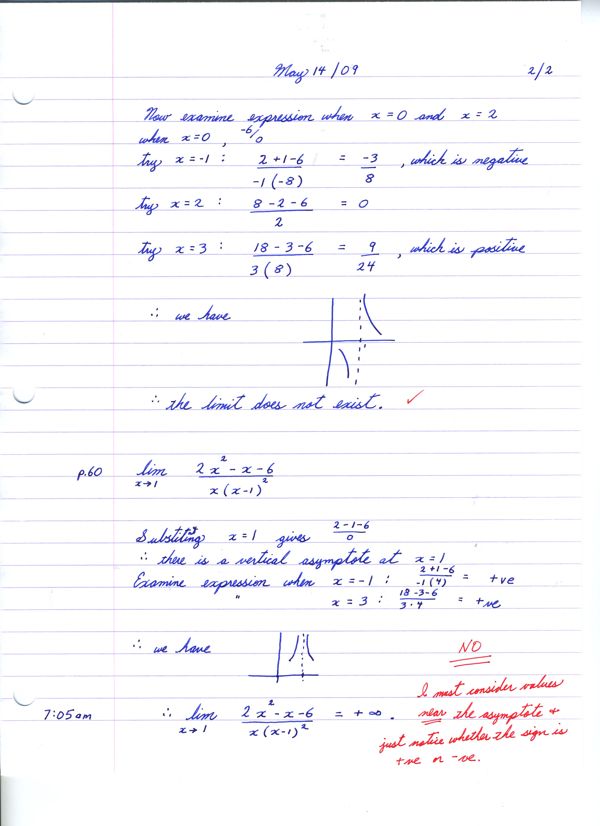 May 14/09 2/2
Now examine expression when x=0 and x=2
when x=0 , -6/0
try x=-1 : (2+1-6)/(-1(-8)) = -3/8 , which is negative
try x=2 : (8-2-6)/2 = 0
try x=3 : (18-3-6)/(3(8)) = 9/24 , which is positive
∴ we have
∴ the limit does not exist. ✓
p.60 lim x→1 (2x²-x-6)/(x(x-1)²)
Substiting x=1 gives (2-1-6)/0
∴ there is a vertical asymptote at x=1
Examine expression when x=-1 : (2+1-6)/(-1(4)) = +ve
" x=3 : (18-3-6)/(3·4) = +ve
∴ we have
NO
7:05am ∴ lim x→1 (2x²-x-6)/(x(x-1)²) = +∞ .
I must consider values
near the asymptote &
just notice whether the sign is
+ve or -ve.